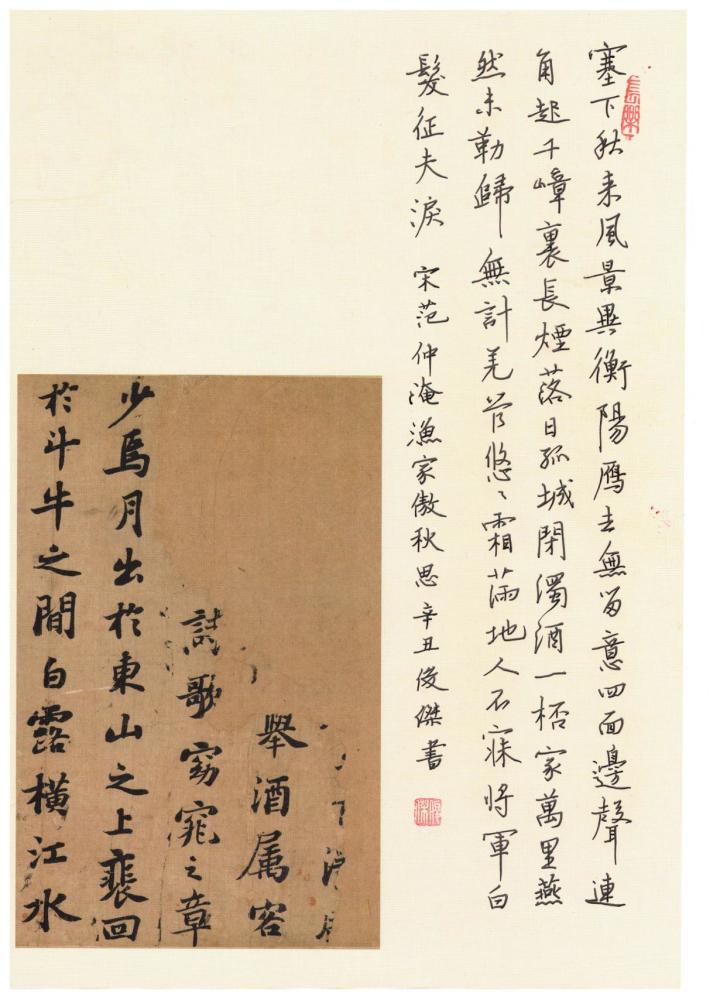 長樂
塞下秋来風景異衡陽鴈去無留意四面邊聲連
角起千嶂裏長煙落日孤城閉濁酒一桮家萬里燕
然未勒歸無計羌管悠〻霜滿地人不寐將軍白
髮征夫淚 宋范仲淹漁家傲秋思 辛丑俊傑書
舉酒属客
詩歌窈窕之章
少焉月出於東山之上裴回
於斗牛之間白露橫江水